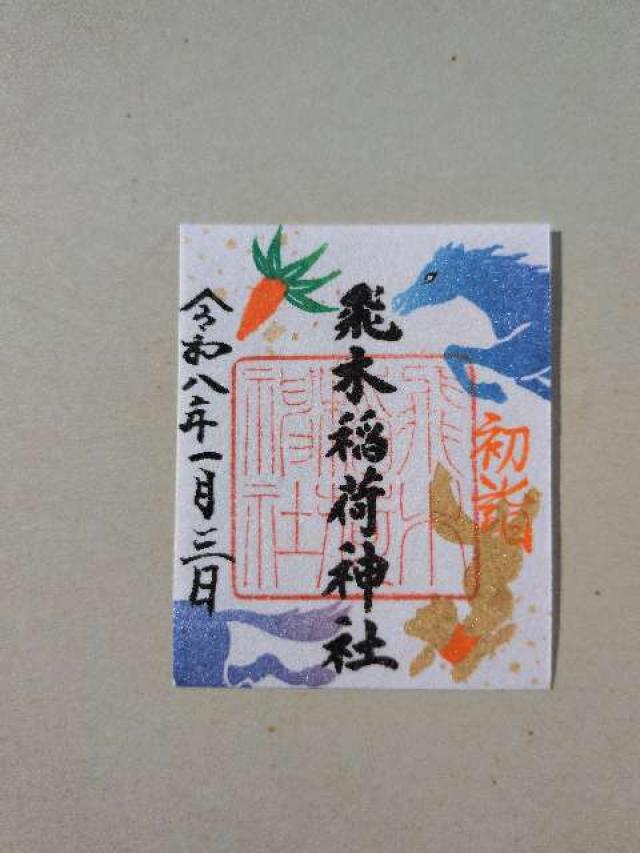 初詣
飛木稲荷神社
飛木稲荷神社
令和八年一月三日